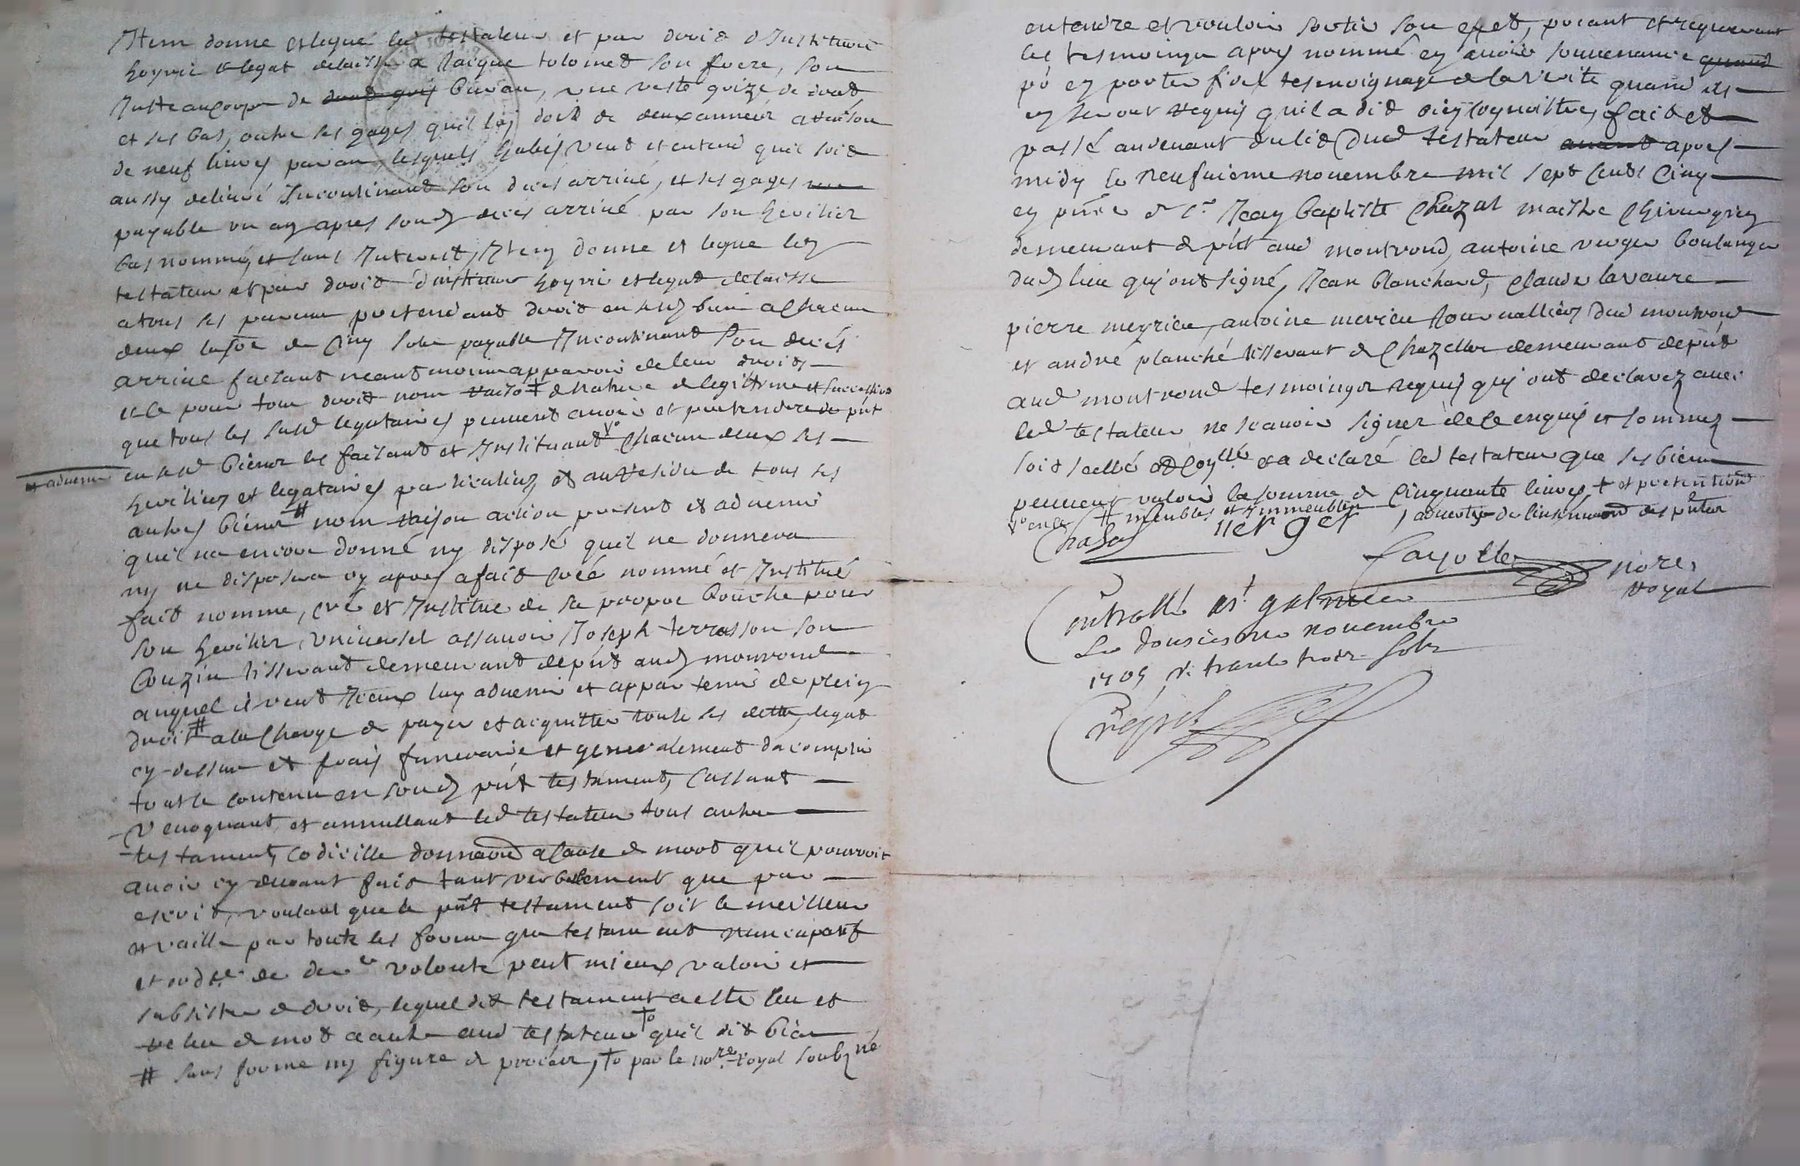 Item donne et legue led testateur et par droit d Institution
hoyrie et legat delaisse a Jacque tolomet son frere, son
Justeaucorps de bureau, une veste grize de drat
et ses bas, outre les gages quil loy doit de deux année a raison
de neuf livres par an lesquels habis veut et entend quil soit
aussy delivré Incontinant son deces arrivé, et ses gages
payable un an apres sond deces arrivé par son heritier
bas nommé, et sans Interest, Item donne et legue led
testateur et par droit d'institution hoyrie et legat delaisse
a tous ses parens pretendant droit en sesd biens a chacun
deux la so^e de cinq sols payable Incontinant son deces
arrivé faisant neantmoins apparoir de leur droits
et ce pour tous droit nom raiso + de nature de legittime et succession
que tous les susd legataires peuvent avoir et pretendre de p^nt
en sesd biens les faisant et Instituant chacun deux ses
# advenir
heritiers et legataires particuliers, et au residu de tous ses
autres biens # nom raison action present et advenir
quil na encore donné ny disposé quil ne donnera
ny ne disposera cy apres a fait creé nommé et Institué
fait nomme, creé et Institue de sa propre bouche pour
son heritier universel assavoir Joseph terrasson son
Couzin tisserant demeurant de p^nt aud monrond
auquel il veut Iceux luy advenir et appartenir de plein
droit # a la charge de payer et acquitter toute ses dette, legat
cy-dessus et frais funeraire et generalement dacomplir
tout le contenu en sond p^nt testament, Cassant
Revoquant et annullant led testateur tous autre
testament, codicille donnaon a cause de mort quil pourroit
avoir cy devant fait tant verbalement que par
escrit, voulant que le p^nt testament soit le meilleur
et vaille par toute les forme que testament nuncupatif
et ord^re de der^re volonté peut mieux valoir et
subsister de droit, lequel dit testament a esté leu et
releu de mot a autre aud testateur †o quil dit bien
# sans forme ny figure de procéz, †o par le no^re royal soubz né
entendre et vouloir sortir son effet, priant et requerant
les tesmoingn apres nommé en avoir souvenance quand
po en porter fidel tesmoignage de la verité quand ils
en seront requis quil a dit bien cognoistre, fait et
passé au devant du lict dud testateur avant apres
midy le neufuieme novembre mil sept cents Cinq
en p^nce de s^r Jean baptiste Chazal maistre Chirurgien
demeurant de p^nt aud montrond, antoine verger boulanger
dud lieu qui ont signé, Jean blanchard, Claude lavaure
pierre meyrieu, antoine merieu Journalliers dud montrond
et andré planché tisserant de Chazelles demeurant de p^nt
aud montrond tesmoingns requis qui ont declarez avec
led testateur ne scavoir signer de ce enquis et sommez
soit scellé et con^lle et a declaré led testateur que ses biens
peuvent valoir la somme de Cinquante livres, + et pretention
# meubles et Immeubles
Chazal verger
fayolle no^re royal
Controllé a s^t galmier
Le dousiesme novembre
1705 R. trante trois sols